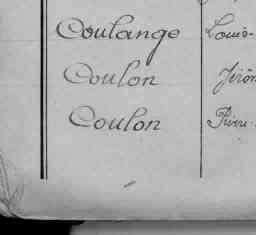 Coulange Louis-
Coulon Jérôm
Coulon Pierre-